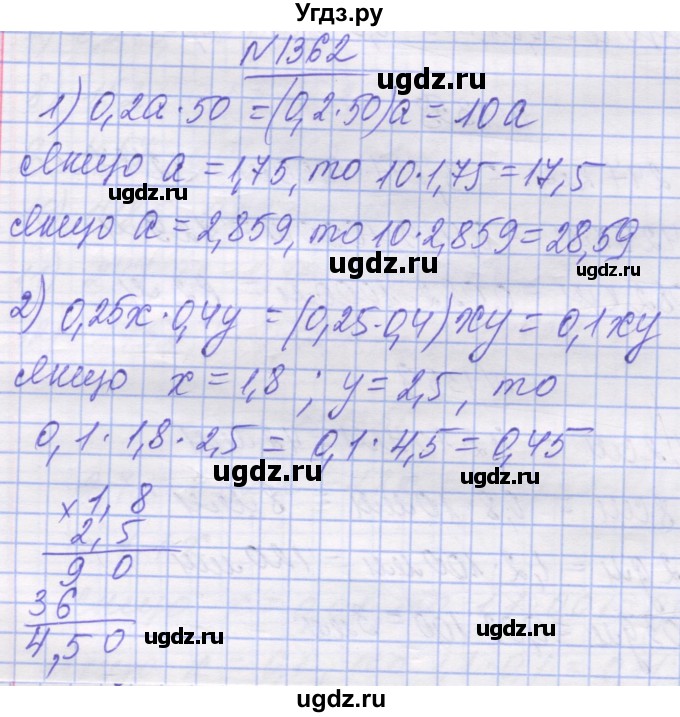 Угдз.ру
N1362
ugdz.ru
1) 0,2a·50 = (0,2·50)a = 10a
Якщо a = 1,75, то 10·1,75 = 17,5
ugdz.ru
Якщо a = 2,859, то 10·2,859 = 28,59
ugdz.ru ugdz.ru
2) 0,25x·0,4y = (0,25·0,4)xy = 0,1xy
ugdz.ru
Якщо x = 1,8; y = 2,5, то
0,1·1,8·2,5 = 0,1·4,5 = 0,45
ugdz.ru ugdz.ru
× 1,8
2,5
90
36
4,50
ugdz.ru ugdz.ru
ugdz.ru